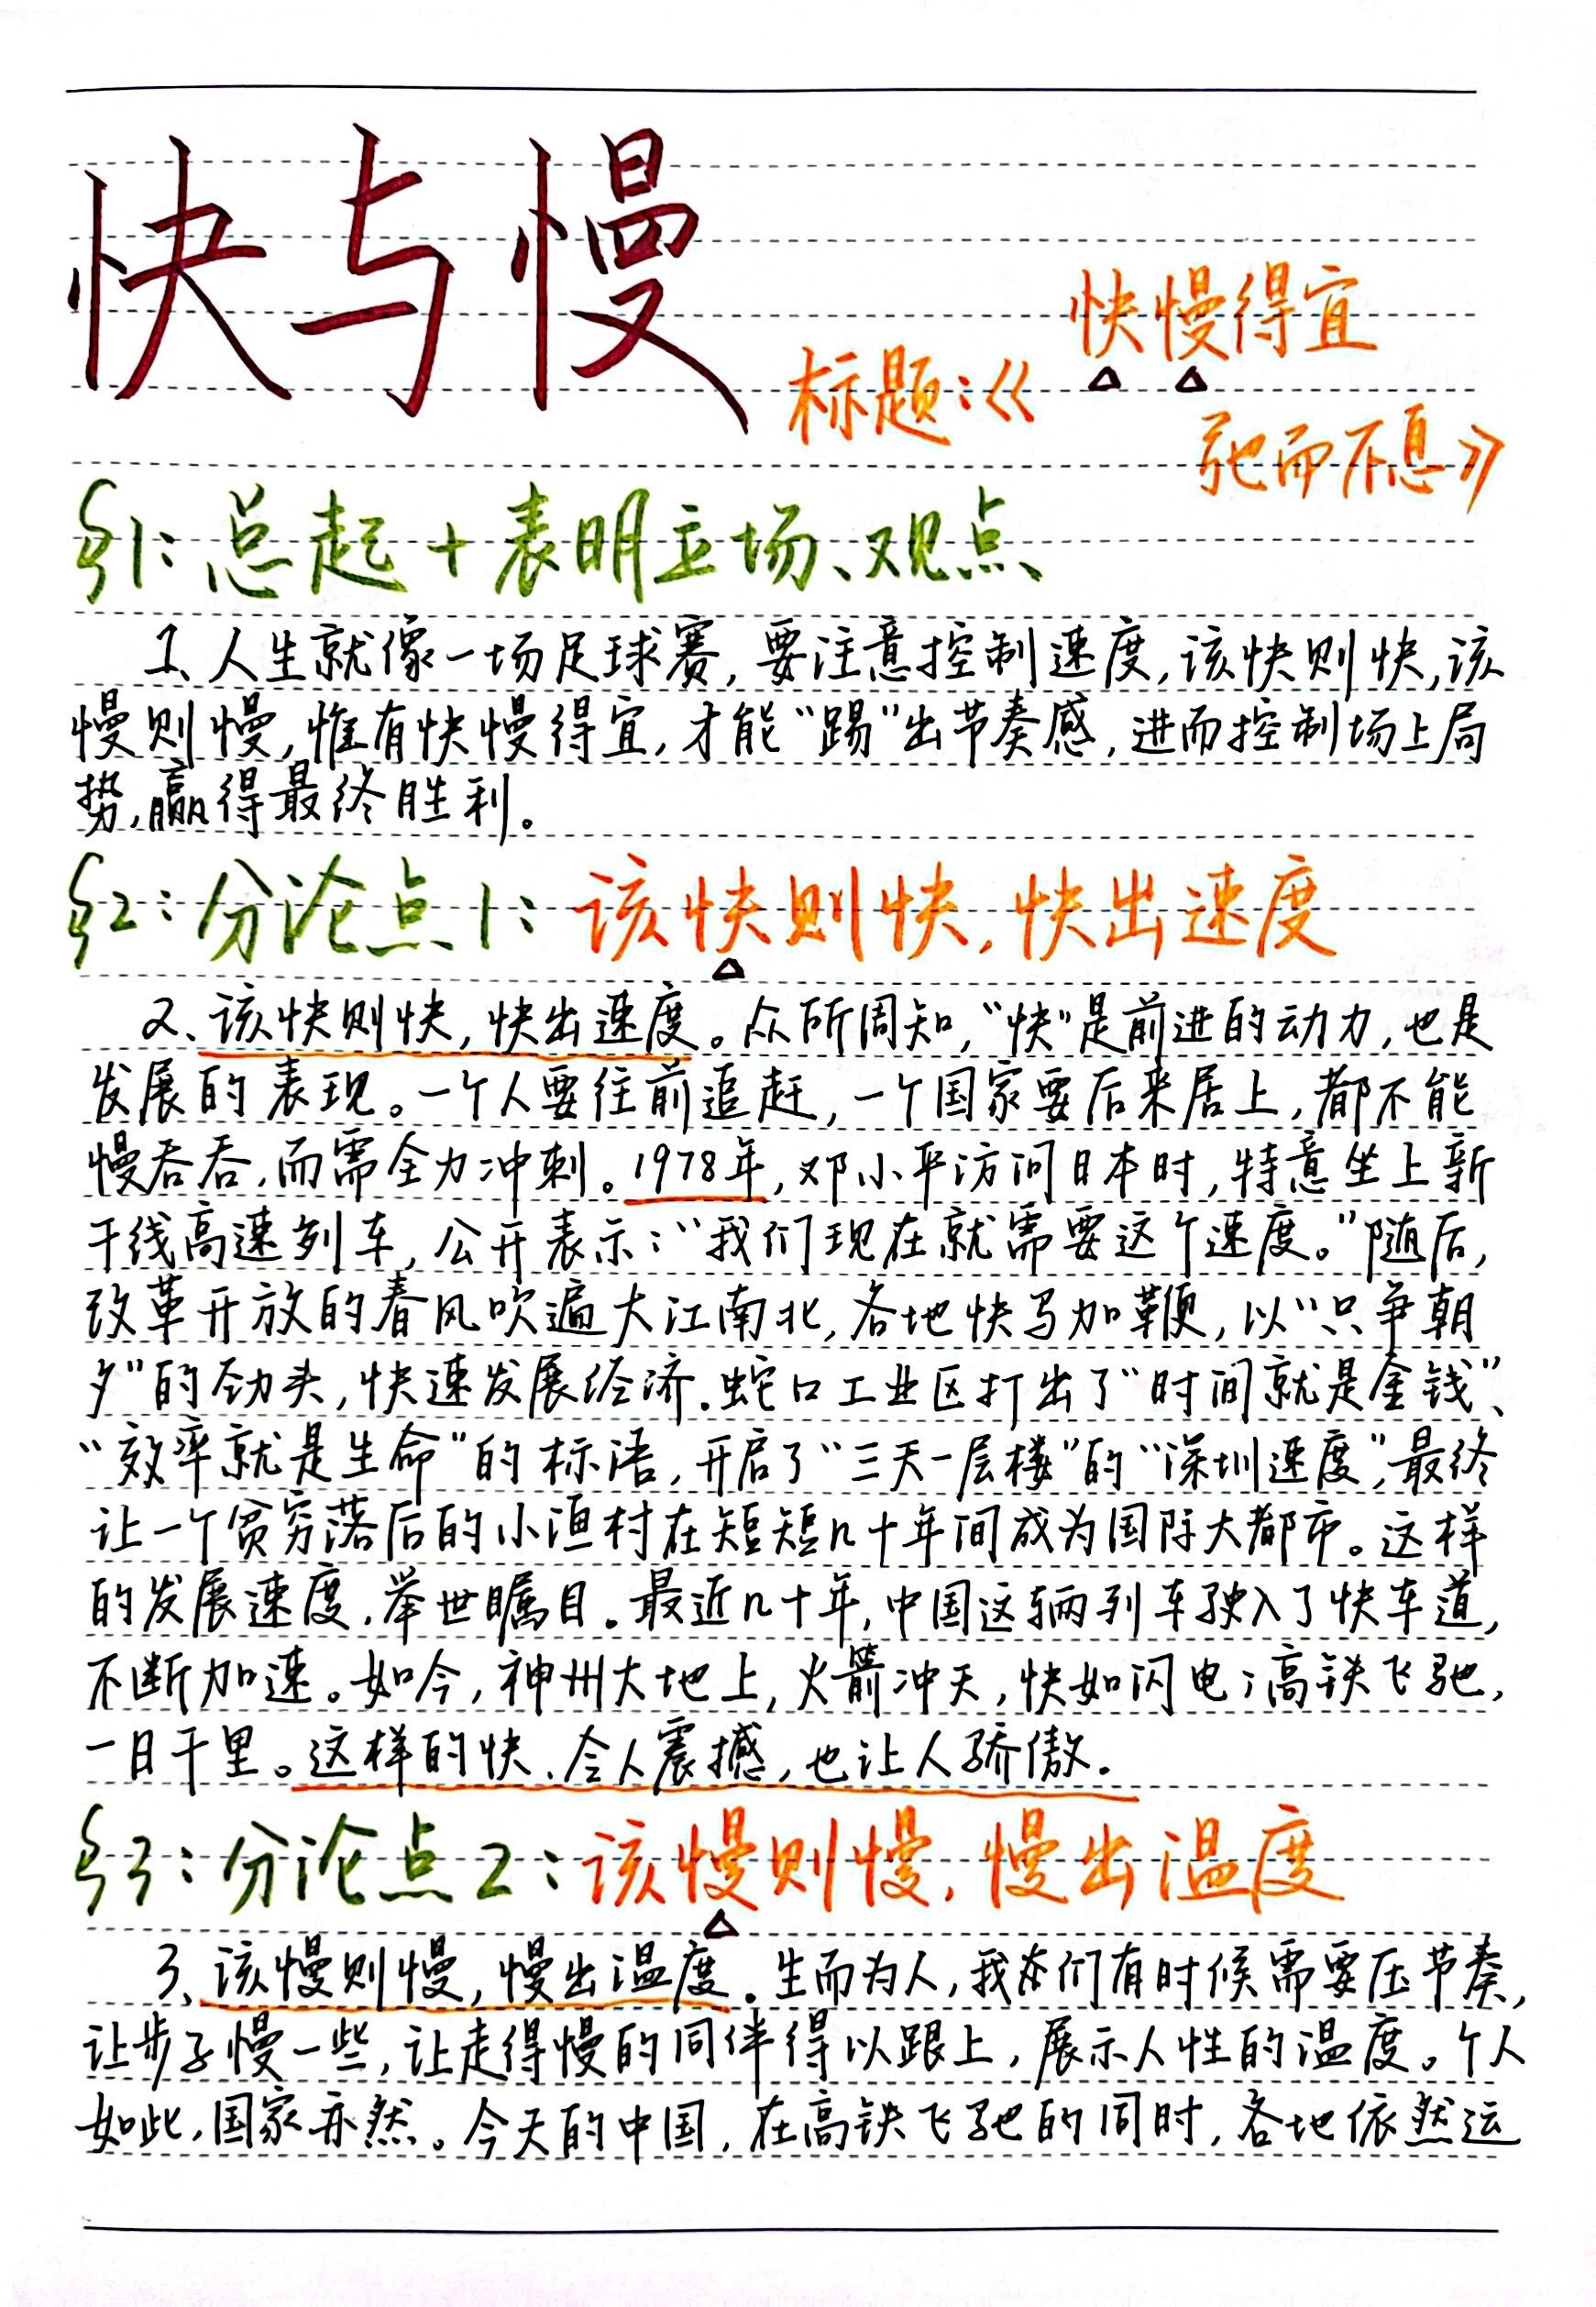 快与慢
标题:《快慢得宜
驰而不息》
§1:总起+表明立场、观点
1、人生就像一场足球赛,要注意控制速度,该快则快,该
慢则慢,惟有快慢得宜,才能“踢”出节奏感,进而控制场上局
势,赢得最终胜利。
§2:分论点1:该快则快,快出速度
2、该快则快,快出速度。众所周知,“快”是前进的动力,也是
发展的表现。一个人要往前追赶,一个国家要后来居上,都不能
慢吞吞,而需全力冲刺。1978年,邓小平访问日本时,特意坐上新
干线高速列车,公开表示:“我们现在就需要这个速度。”随后,
改革开放的春风吹遍大江南北,各地快马加鞭,以“只争朝
夕”的劲头,快速发展经济.蛇口工业区打出了“时间就是金钱”、
“效率就是生命”的标语,开启了“三天一层楼”的“深圳速度”,最终
让一个贫穷落后的小渔村在短短几十年间成为国际大都市。这样
的发展速度,举世瞩目。最近几十年,中国这辆列车驶入了快车道,
不断加速。如今,神州大地上,火箭冲天,快如闪电;高铁飞驰,
一日千里。这样的快、令人震撼,也让人骄傲.
§3:分论点2:该慢则慢,慢出温度
3、该慢则慢,慢出温度.生而为人,我们有时候需要压节奏,
让步子慢一些,让走得慢的同伴得以跟上,展示人性的温度。个人
如此,国家亦然。今天的中国,在高铁飞驰的同时,各地依然运